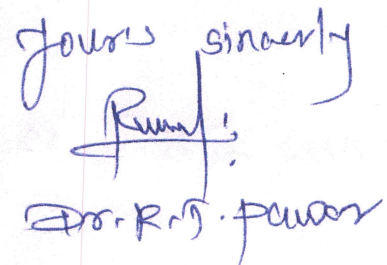 Yours sincerly
Dr. R. J. Pawar